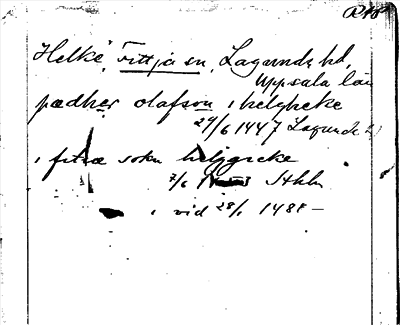 Helke, Vittja sn, Lagunda hd,
Uppsala län
pædher olafson i helgheke
29/6 1447 Lagunda
i fitiæ sokn helgreke
7/6 Sthlm
i vid 28/1 1488 –